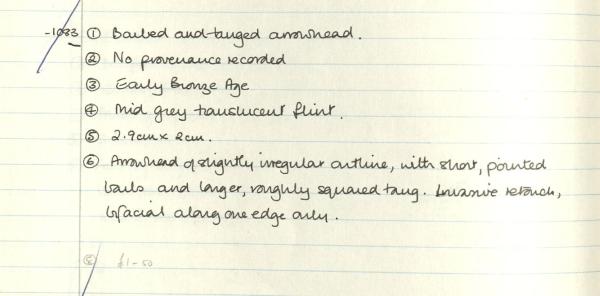 -1033 ① Barbed and-tanged arrowhead.
② No provenance recorded
③ Early Bronze Age
④ Mid grey translucent flint.
⑤ 2.9cm x 2cm.
⑥ Arrowhead of slightly irregular outline, with short, pointed
barbs and larger, roughly squared tang. Invasive retouch,
bifacial along one edge only.
⑧ £1-50